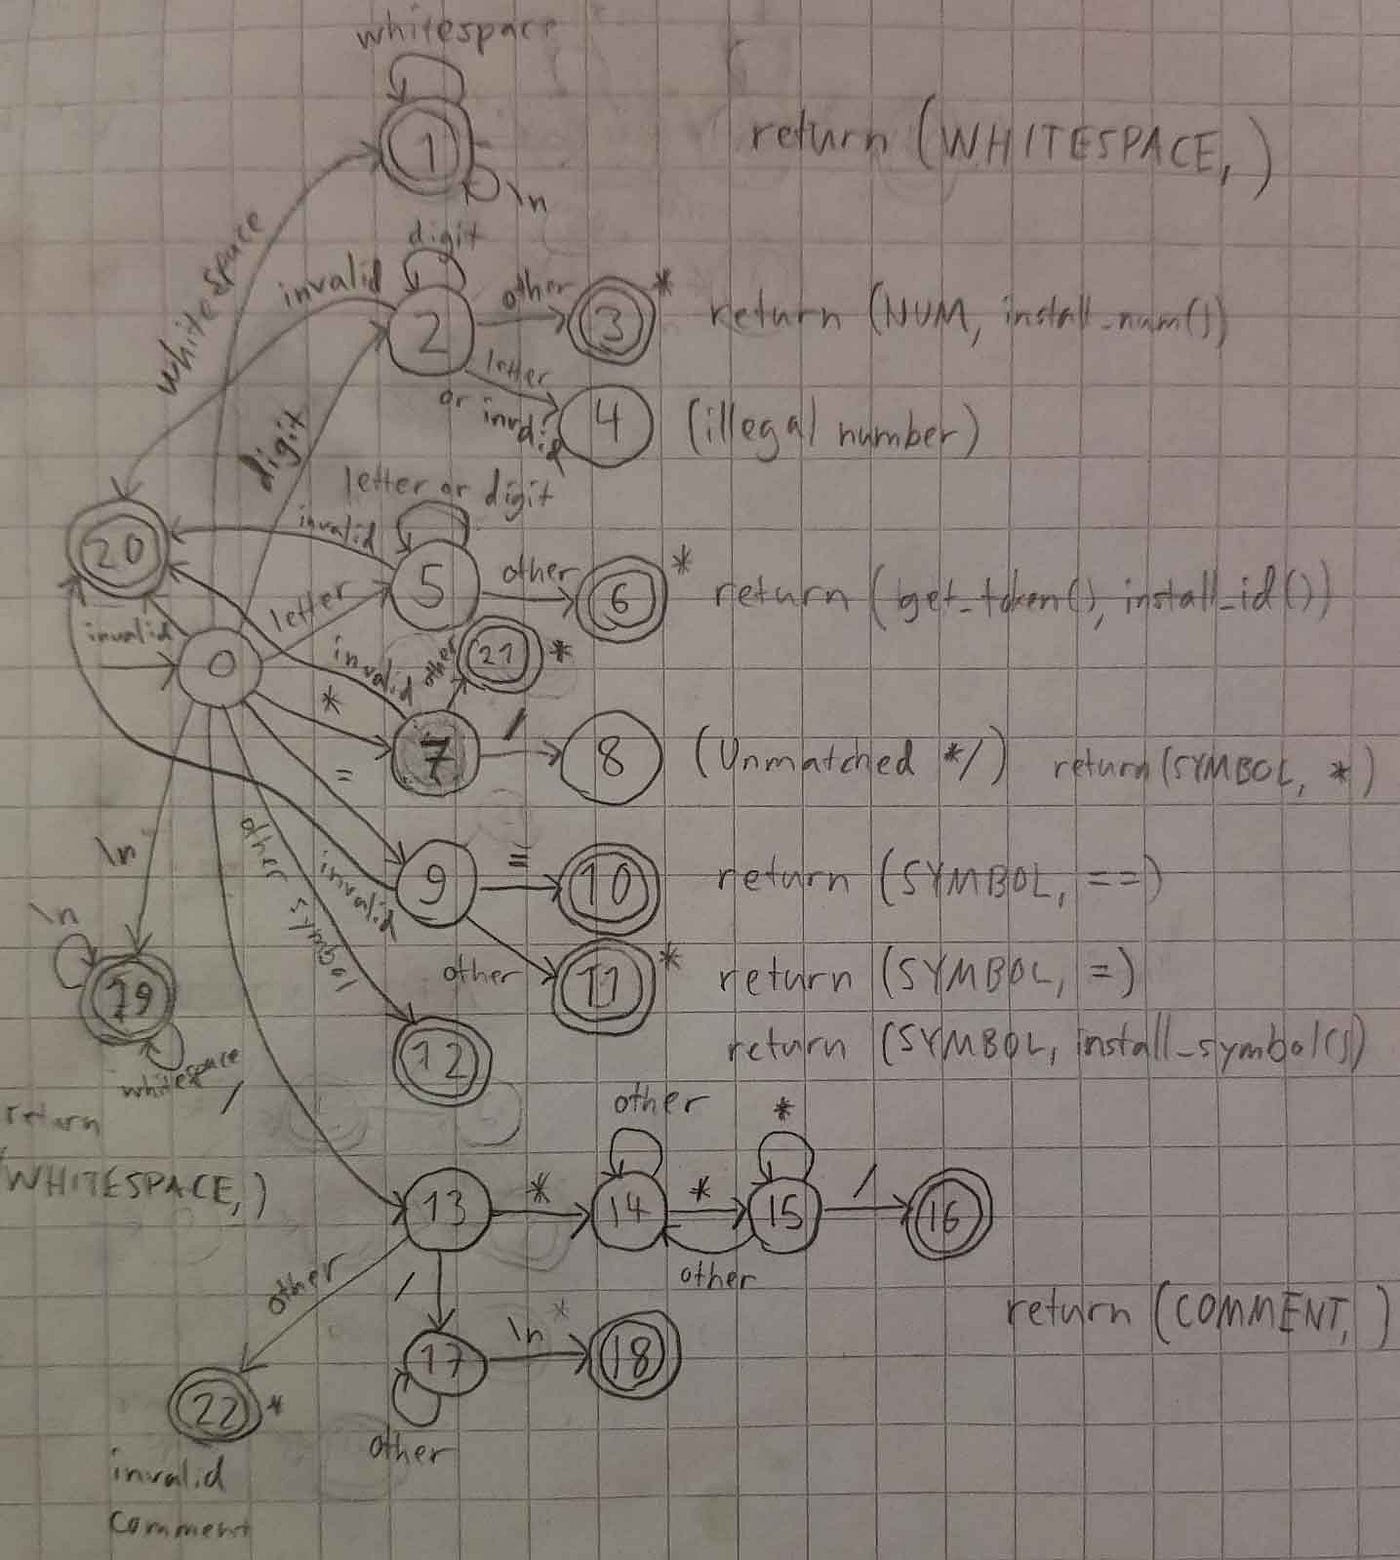 whitespace
1
return (WHITESPACE, )
\n
whitespace
digit
invalid
other
*
2
3
return (NUM, install_num())
letter
or invalid
4
(illegal number)
digit
letter or digit
20
invalid
5
other
6
*
return (get_token(), install_id())
letter
invalid
0
invalid
other
21
*
*
7
/
8
(Unmatched */) return (SYMBOL, *)
=
\n
other symbol
invalid
9
=
10
return (SYMBOL, ==)
\n
other
11
*
return (SYMBOL, =)
19
12
return (SYMBOL, install_symbol())
whitespace
/
return
(WHITESPACE, )
other
*
13
*
14
*
15
/
16
other
other
/
return (COMMENT, )
17
\n
*
18
22
*
other
invalid
comment